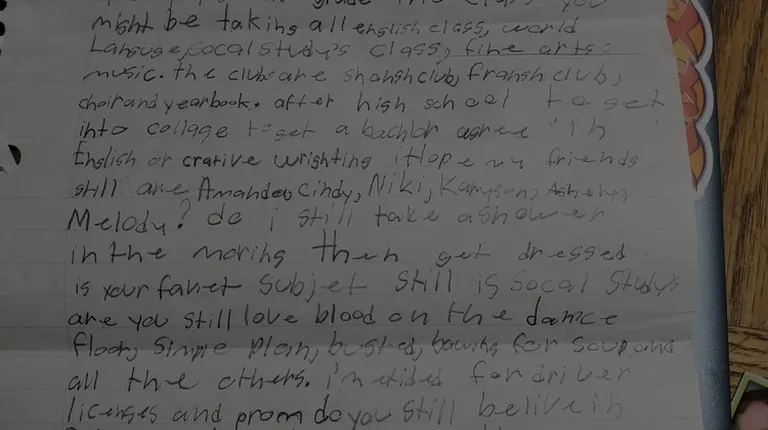 grade the class you
might be taking all english class, world
Languge, socal Study's class, fine arts:
music. the clubs are spansh club, fransh club,
choir and yearbook. after high school to get
into collage to get a bachlor agree in
English or crative wrighting i Hope my friends
still are Amanda, Cindy, Niki, Kamyson, Ashelyn,
Melody? do i still take a shower
in the moring then get dressed.
is your favet subjet still is Socal Study's
are you still love blood on the dance
floor, Simple plan, busted, bowling for soup, and
all the others. i'm exided for driver
licenses and prom do you still belive in